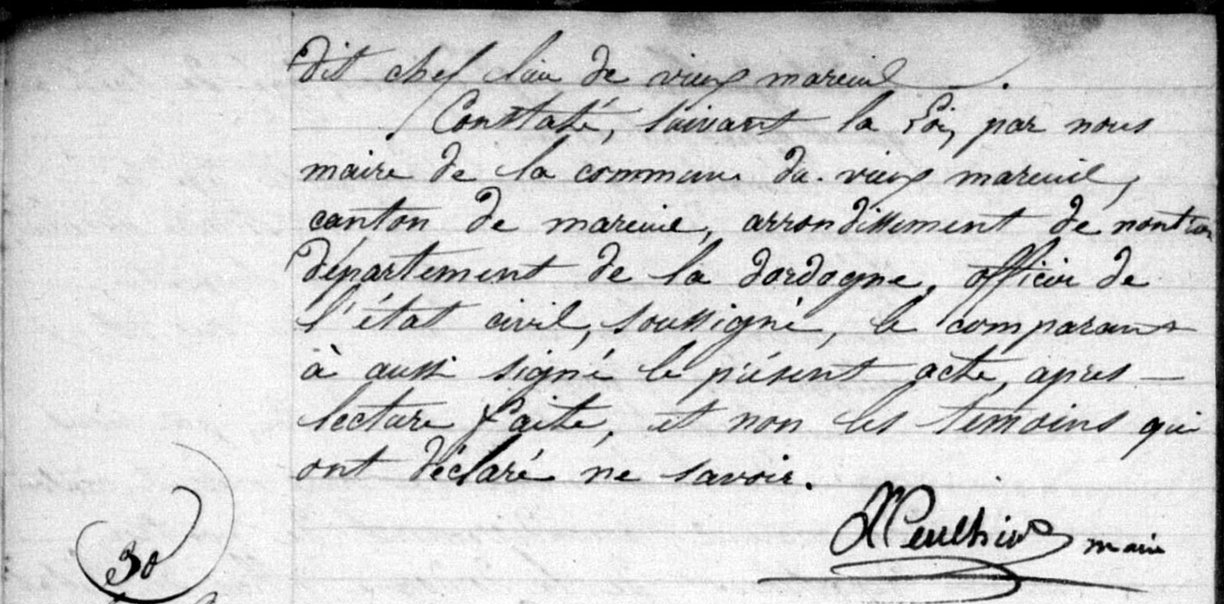 dit chef lieu de vieux mareuil.
Constaté, suivant la Loi, par nous
maire de la commune du vieux mareuil,
canton de mareuil, arrondissement de nontron
département de la dordogne, officier de
l'état civil, soussigné, le comparant
à aussi signé le présent acte, apres
lecture faite, et non les témoins qui
ont déclaré ne savoir.
maire
30